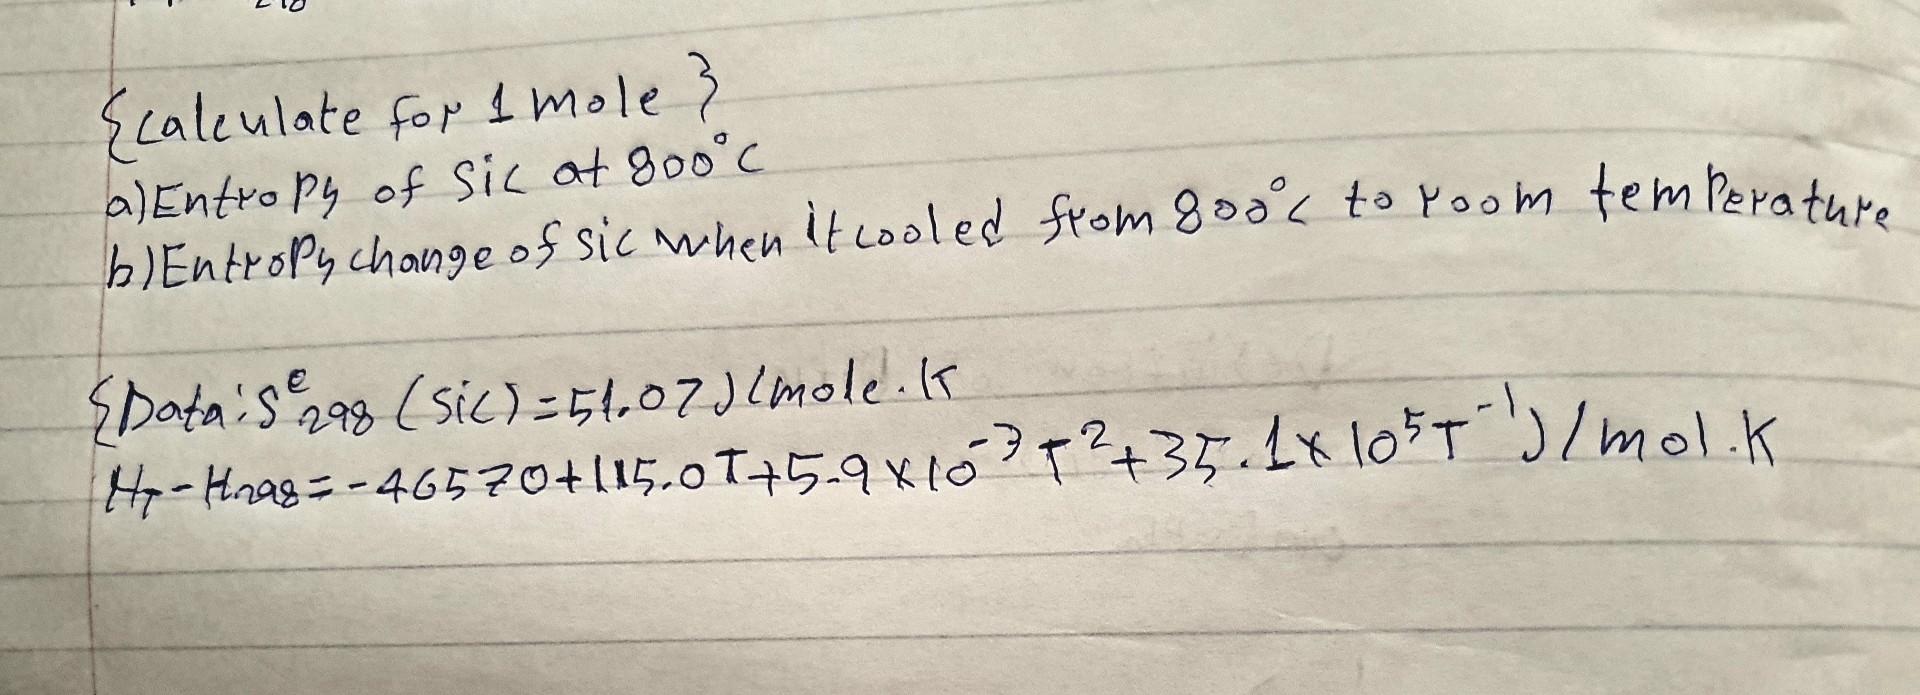 {Calculate for 1 mole}
a) Entropy of Sic at 800°C
b) Entropy change of sic when it cooled from 800°C to room temperature
{Data: S°298 (Sic) = 51.07 J/mole.K
HT - H298 = -46570 + 115.0T + 5.9 x 10⁻³ T² + 35.1 x 10⁵ T⁻¹ J/mol.K